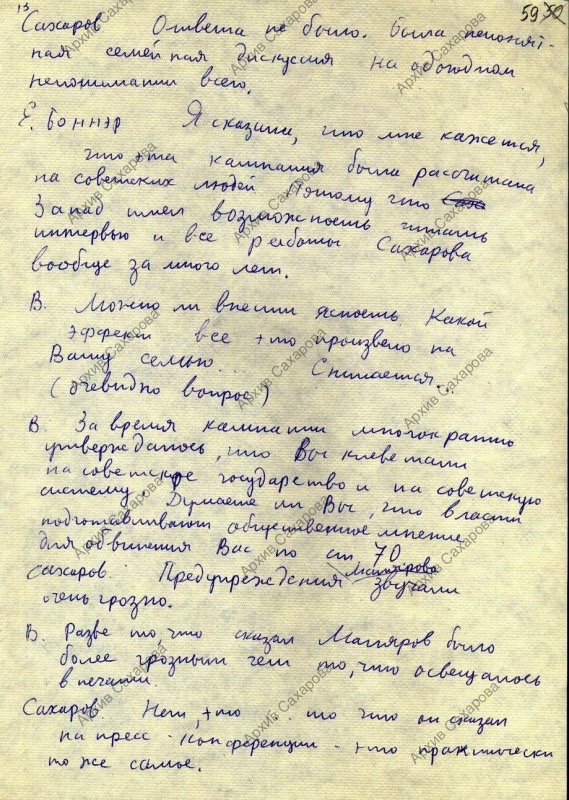 13
59 50
Сахаров Ответа не было. Была непонят-
ная семейная дискуссия на обоюдном
непонимании всего.
Е. Боннэр Я сказала, что мне кажется,
что эта кампания была расчитана
на советских людей потому что
Запад имел возможность читать
интервью и все работы Сахарова
вообще за много лет.
В. Можно ли внести ясность. Какой
эффект все это произвело на
Вашу семью... Считается...
(очевидно вопрос)
В. За время кампании многократно
утверждалось, что Вы клеветали
на советское государство и на советскую
систему. Думаете ли Вы, что власти
подготавливают общественное мнение
для обвинения Вас по ст 70.
Сахаров. Предупреждения Малярова звучали
очень грозно.
В. Разве то, что сказал Маляров было
более грозным чем то, что освещалось
в печати.
Сахаров. Нет, это ... то что он сказал
на пресс-конференции - это практически
то же самое.
Архив Сахарова